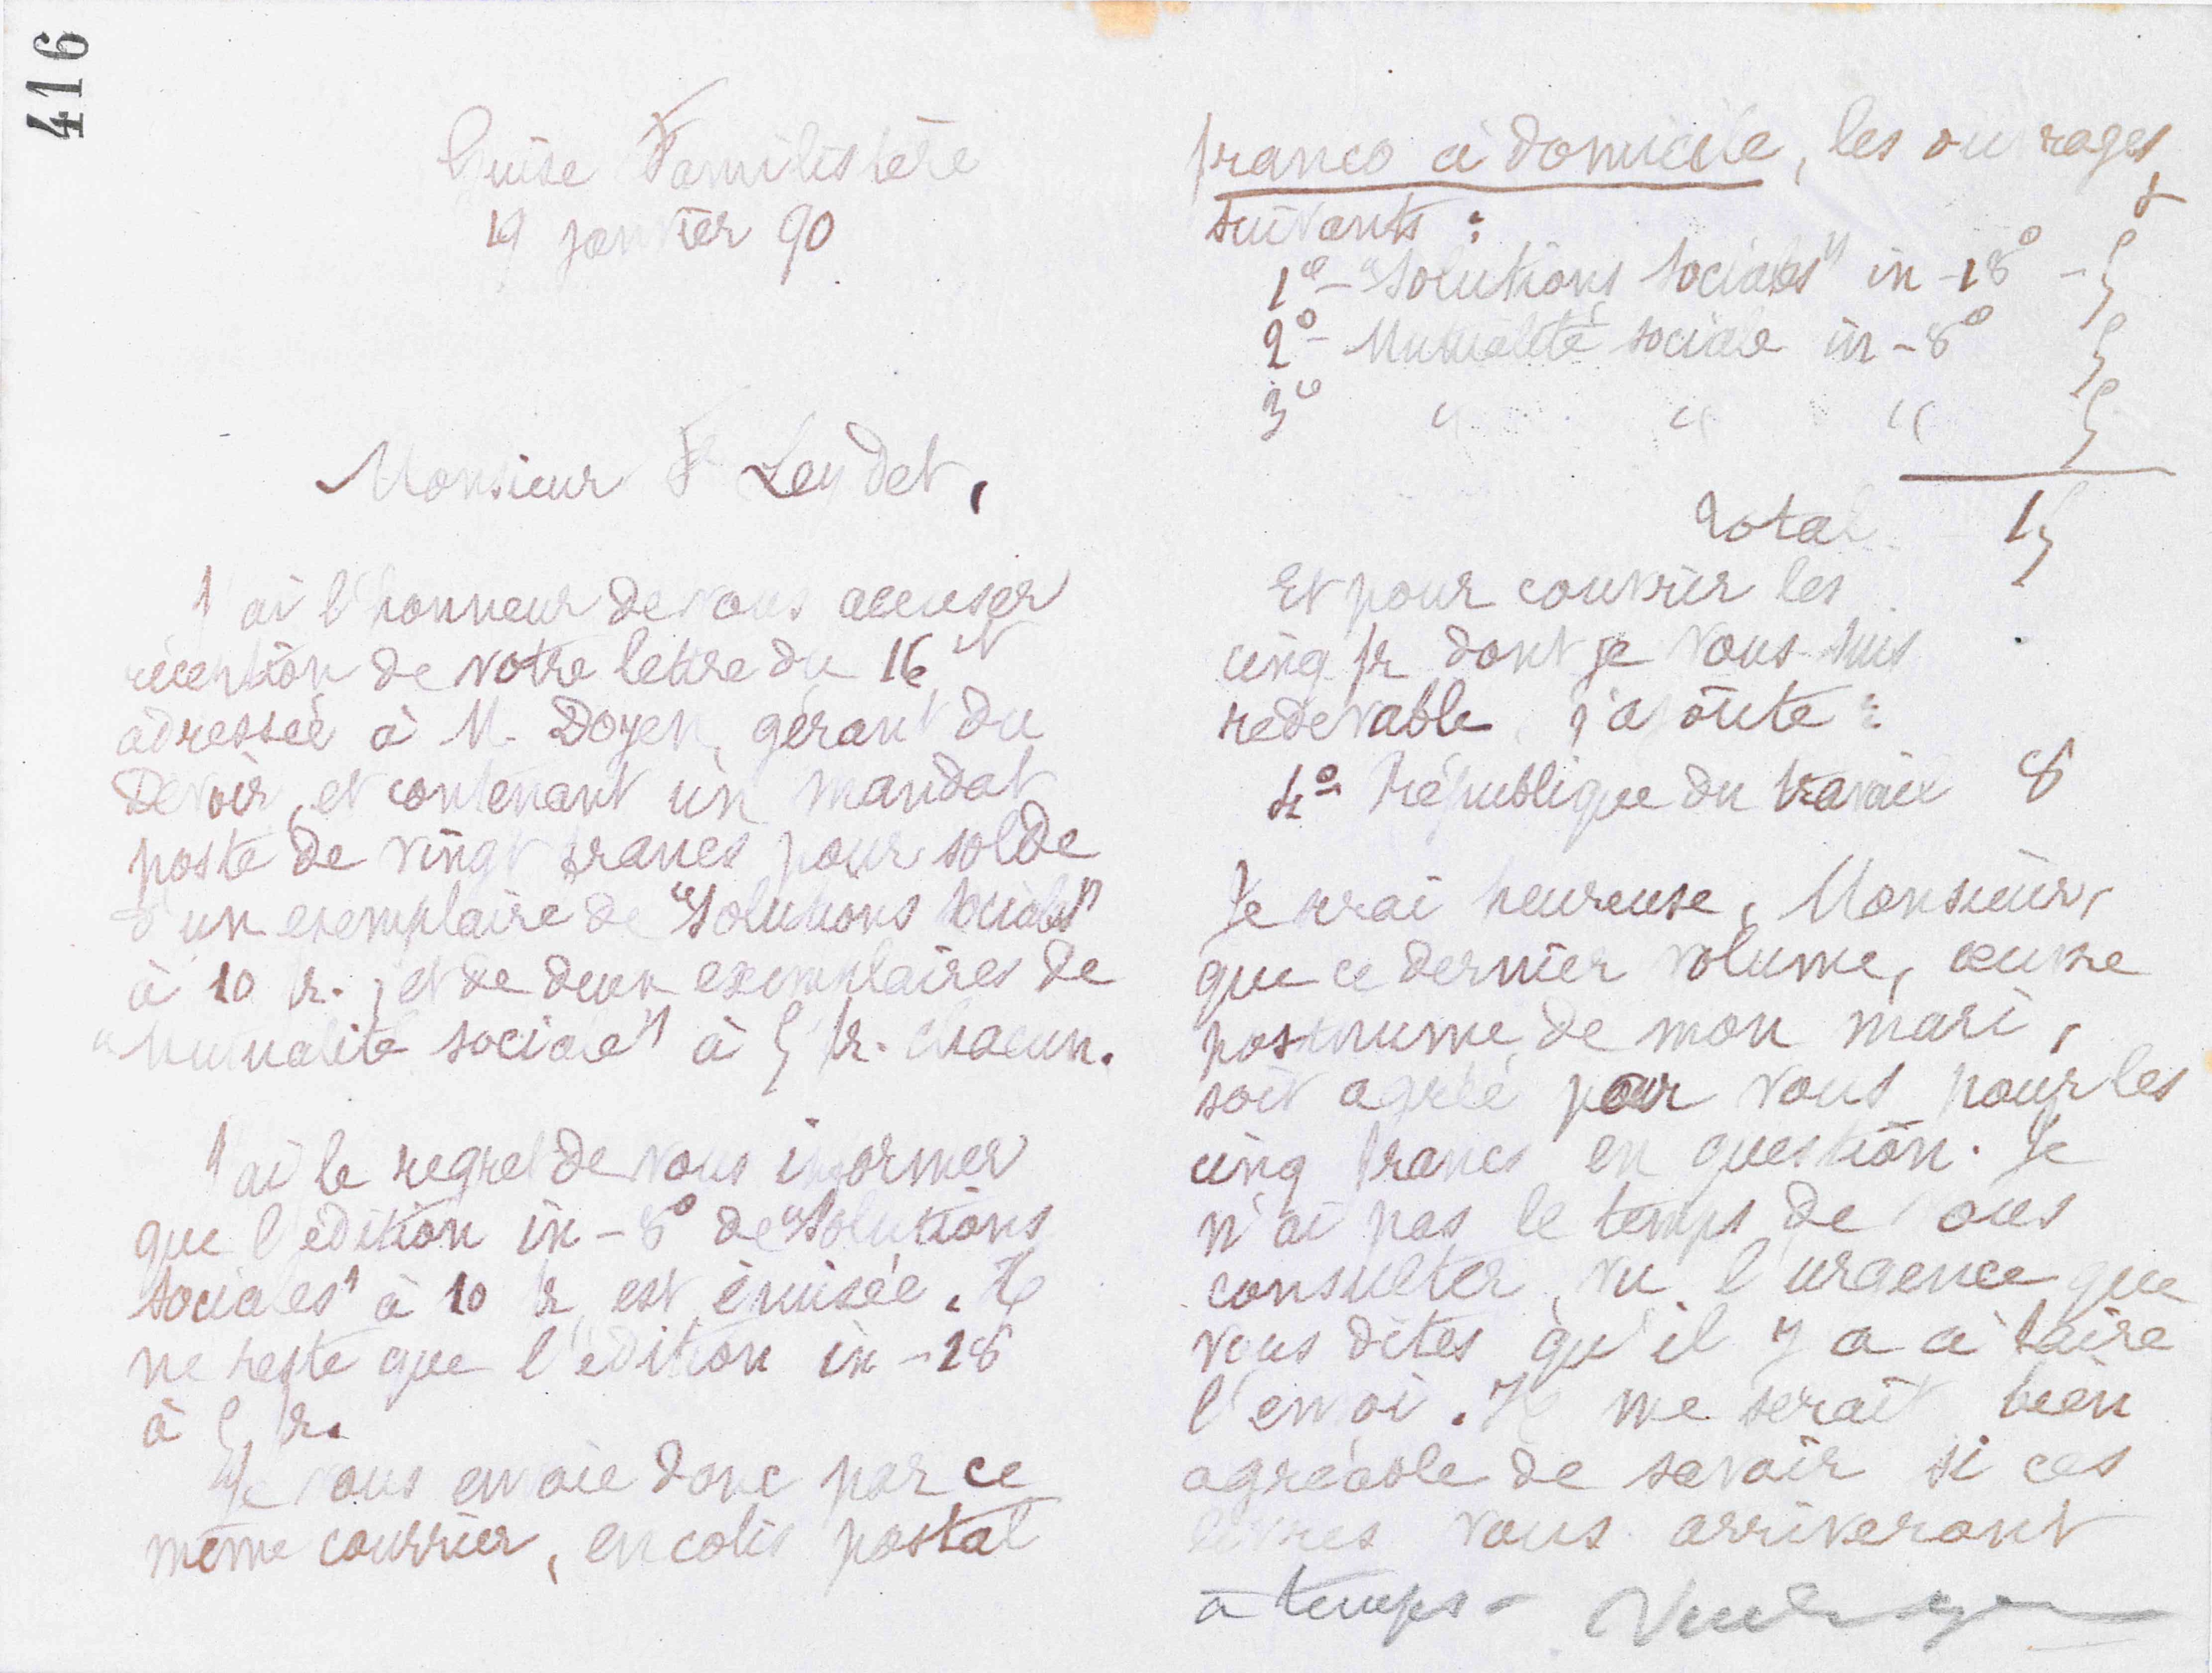 416
Guise Familistère
19 janvier 90
Monsieur F Leydet,
J'ai l'honneur de vous accuser
réception de votre lettre du 16 ct
adressée à M. Doyen, gérant du
Devoir, et contenant un mandat
poste de vingt francs pour solde
d'un exemplaire de "Solutions sociales"
à 10 fr. ; et de deux exemplaires de
"Mutualité sociale" à 5 fr. chacun.
J'ai le regret de vous informer
que l'édition in-8° de "Solutions
sociales" à 10 fr est épuisée. Il
ne reste que l'édition in-18
à 5 fr.
Je vous envoie donc par ce
même courrier, en colis postal
franco à domicile, les ouvrages
suivants :
1° - "Solutions sociales" in-18° - 5
2° - Mutualité sociale in-8° 5
3° " " " 5
Total 15
Et pour couvrir les
cinq fr dont je vous suis
redevable, j'ajoute :
4° République du travail 8
Je serai heureuse, Monsieur,
que ce dernier volume, œuvre
posthume de mon mari,
soit agréé par vous pour les
cinq francs en question. Je
n'ai pas le temps de vous
consulter, vu l'urgence que
vous dites qu'il y a à faire
l'envoi. Il me serait bien
agréable de savoir si ces
livres vous arriveront
à temps -